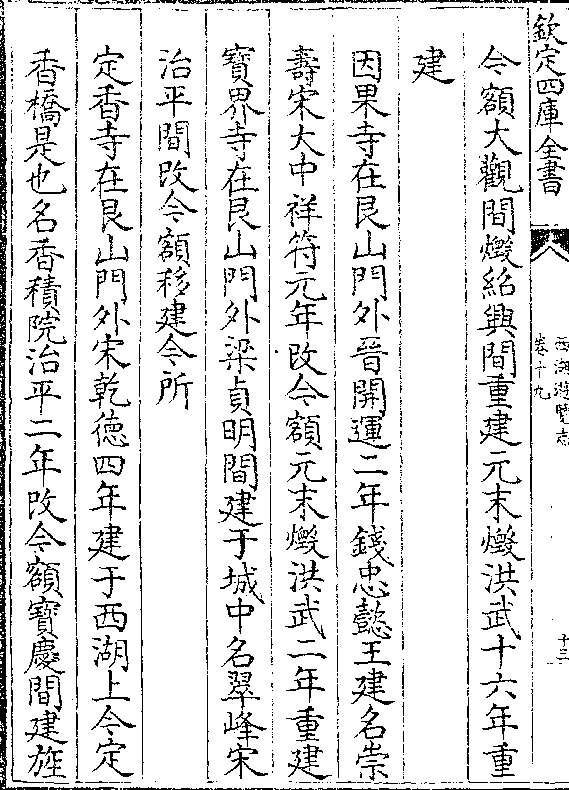 欽定四庫全書
西湖遊覽志
卷十九
十三
今額大觀間燬紹興間重建元末燬洪武十六年重
建
因果寺在艮山門外晉開運二年錢忠懿王建名崇
壽宋大中祥符元年改今額元末燬洪武二年重建
寶界寺在艮山門外梁貞明間建于城中名翠峰宋
治平間改今額移建今所
定香寺在艮山門外宋乾德四年建于西湖上今定
香橋是也名香積院治平二年改今額寶慶間建旌